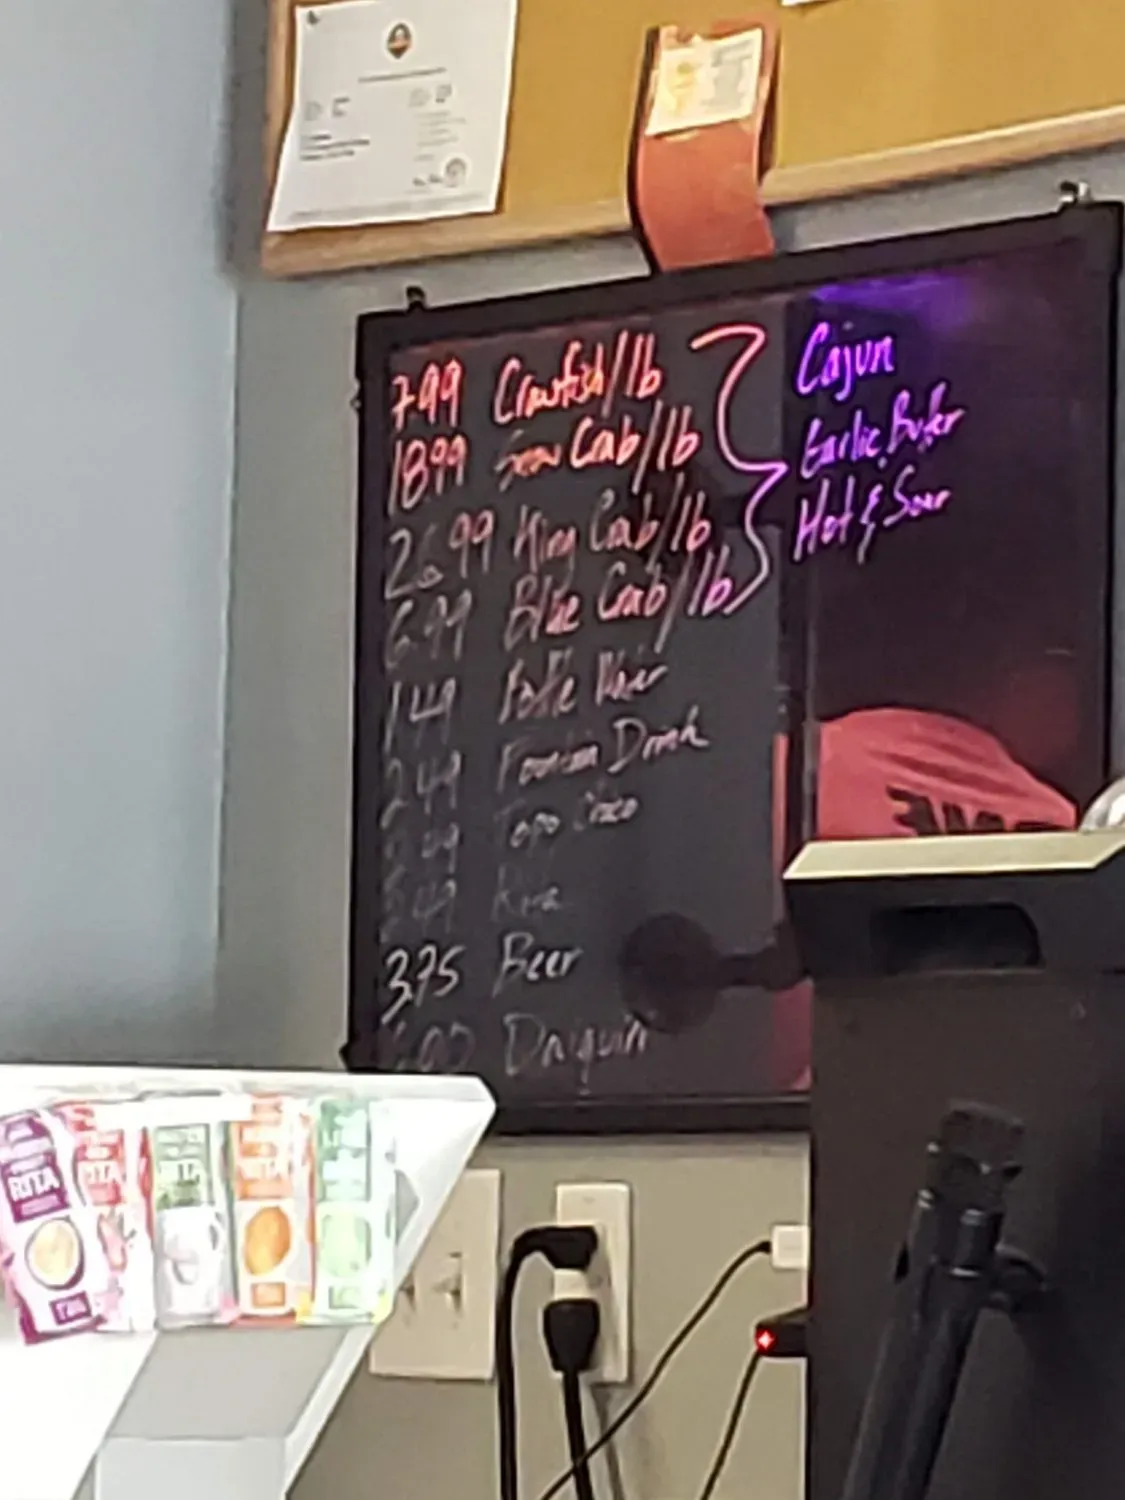 7.99 Crawfish/lb
18.99 Snow Crab/lb
26.99 King Crab/lb
6.99 Blue Crab/lb
1.49 Bottle Water
2.49 Fountain Drink
Topo Chico
Rita
3.75 Beer
Daiquiri
Cajun
Garlic Butter
Hot & Sour
RITA
RITA
RITA
RITA